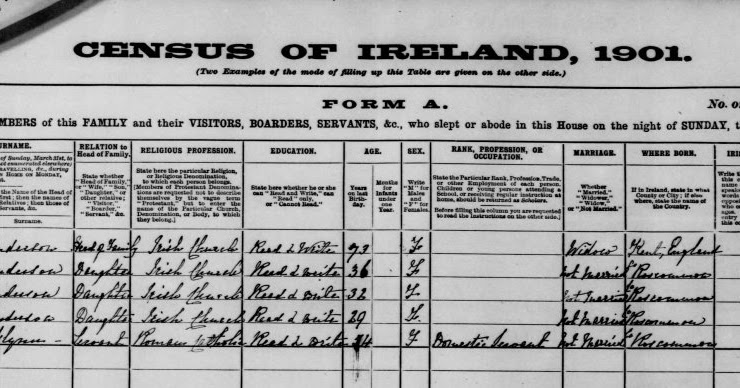 CENSUS OF IRELAND, 1901.
(Two Examples of the mode of filling up this Table are given on the other side.)
FORM A.
No. on
MBERS of this FAMILY and their VISITORS, BOARDERS, SERVANTS, &c., who slept or abode in this House on the night of SUNDAY, t
RELATION to Head of Family.
State whether "Head of Family," or "Wife," "Son," "Daughter," or other relative; "Visitor," "Boarder," "Servant," &c.
RELIGIOUS PROFESSION.
State here the particular Religion, or Religious Denomination, to which each person belongs.
[Members of Protestant Denominations are requested not to describe themselves by the vague term "Protestant," but to enter the name of the Particular Church, Denomination, or Body, to which they belong.]
EDUCATION.
State here whether he or she can "Read and Write," can "Read" only, or "Cannot Read."
AGE.
Years on last Birthday.
Months for Infants under one Year.
SEX.
Write "M" for Males and "F" for Females.
RANK, PROFESSION, OR OCCUPATION.
State the Particular Rank, Profession, Trade, or other Employment of each person. Children or young persons attending a School, or receiving regular instruction at home, should be returned as Scholars.
Before filling this column you are requested to read the Instructions on the other side.]
MARRIAGE.
Whether "Married," "Widower," "Widow," or "Not Married."
WHERE BORN.
If in Ireland, state in what County or City; if elsewhere, state the name of the Country.
Surname.
Head of Family Irish Church Read & Write 73 F Widow Kent, England
Daughter Irish Church Read & write 36 F Not Married Co Roscommon
Daughter Irish Church Read & Write 32 F. Not Married Co Roscommon
Daughter Irish Church Read & write 29 F. Not Married Co Roscommon
Servant Roman Catholic Read & Write 24 F Domestic Servant Not Married Co Roscommon